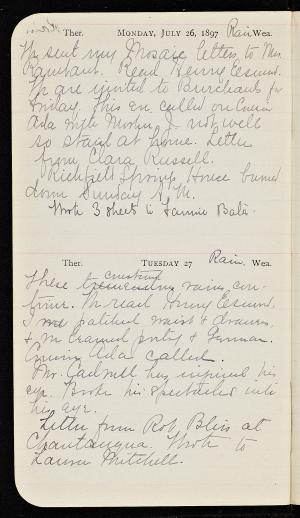 Ther. MONDAY, JULY 26, 1897 Rain Wea.
M sent my Mosaic letters to Mrs.
Read Henry Esmond.
We are invited to Burchards for
Friday. This eve. called on Cousin
Ada with Mother, I not well
so staid at home. Letter
from Clara Russell.
Richfield Springs House burned
down Sunday A.M.
Wrote 3 sheets to Fannie Bates.
Ther. TUESDAY 27 Rain. Wea.
These constant rains con-
tinue. M. read Henry Esmond.
I patched waist & drawers
& M. crammed poetry & German.
Cousin Ada called.
Mr. Cadwell has injured his
eye. Broke his spectacles into
his eye.
Letter from Rob Bliss at
Chautauqua. Wrote to
Laura Mitchell.